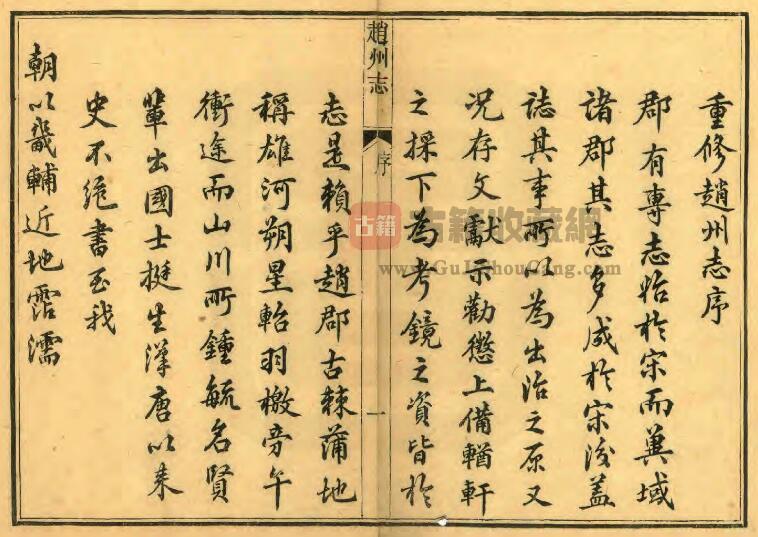 重修趙州志序
郡有專志昉於宋而冀域
諸郡其志多成於宋後蓋
誌其事所以為出治之原又
況存文獻示勸懲上備輶軒
之採下為考鏡之資皆於
趙州志
序
一
志是賴乎趙郡古棘蒲地
稱雄河朔星軺羽檄旁午
衝途而山川所鍾毓名賢
輩出國士挺生漢唐以來
史不絕書至我
朝以畿輔近地霑濡
古籍
古籍收藏網
www.GuJiShouCang.com